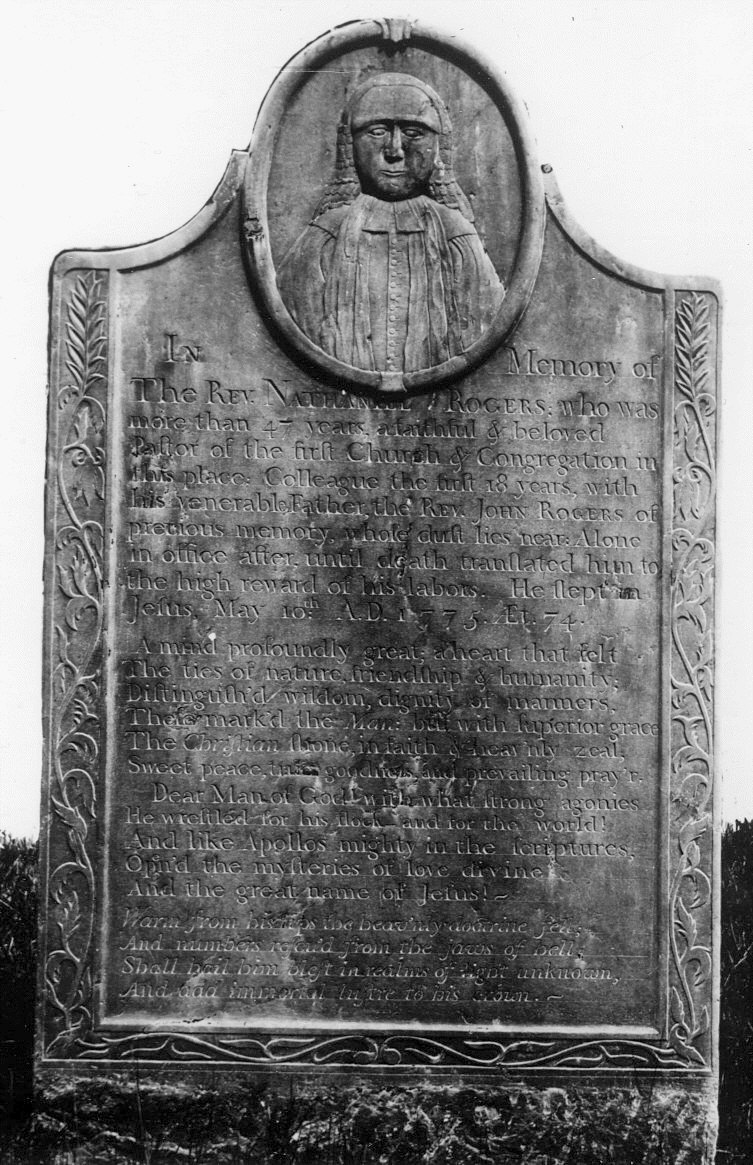 In Memory of
The Rev. Nathaniel Rogers; who was
more than 47 years, a faithful & beloved
Paſtor of the firſt Church & Congregation in
this place: Colleague the firſt 18 years, with
his venerable Father, the Rev. John Rogers of
precious memory, whoſe duſt lies near: Alone
in office after, until death tranſlated him to
the high reward of his labors. He ſlept in
Jeſus, May 10th A.D. 1775. Æt. 74.
A mind profoundly great, a heart that felt
The ties of nature, friendſhip & humanity;
Diſtinguiſh'd wiſdom, dignity of manners,
Theſe mark'd the Man: but with ſuperior grace
The Chriſtian ſhone, in faith & heav'nly zeal,
Sweet peace, true goodneſs, and prevailing pray'r.
Dear Man of God! with what ſtrong agonies
He wreſtled for his flock and for the world!
And like Apollos mighty in the ſcriptures,
Op'n'd the myſteries of love divine,
And the great name of Jeſus! ~
Warm from his lips the heav'nly doctrine fell,
And numbers reſcu'd from the jaws of hell,
Shall hail him bleſt in realms of light unknown,
And add immortal luſtre to his crown. ~